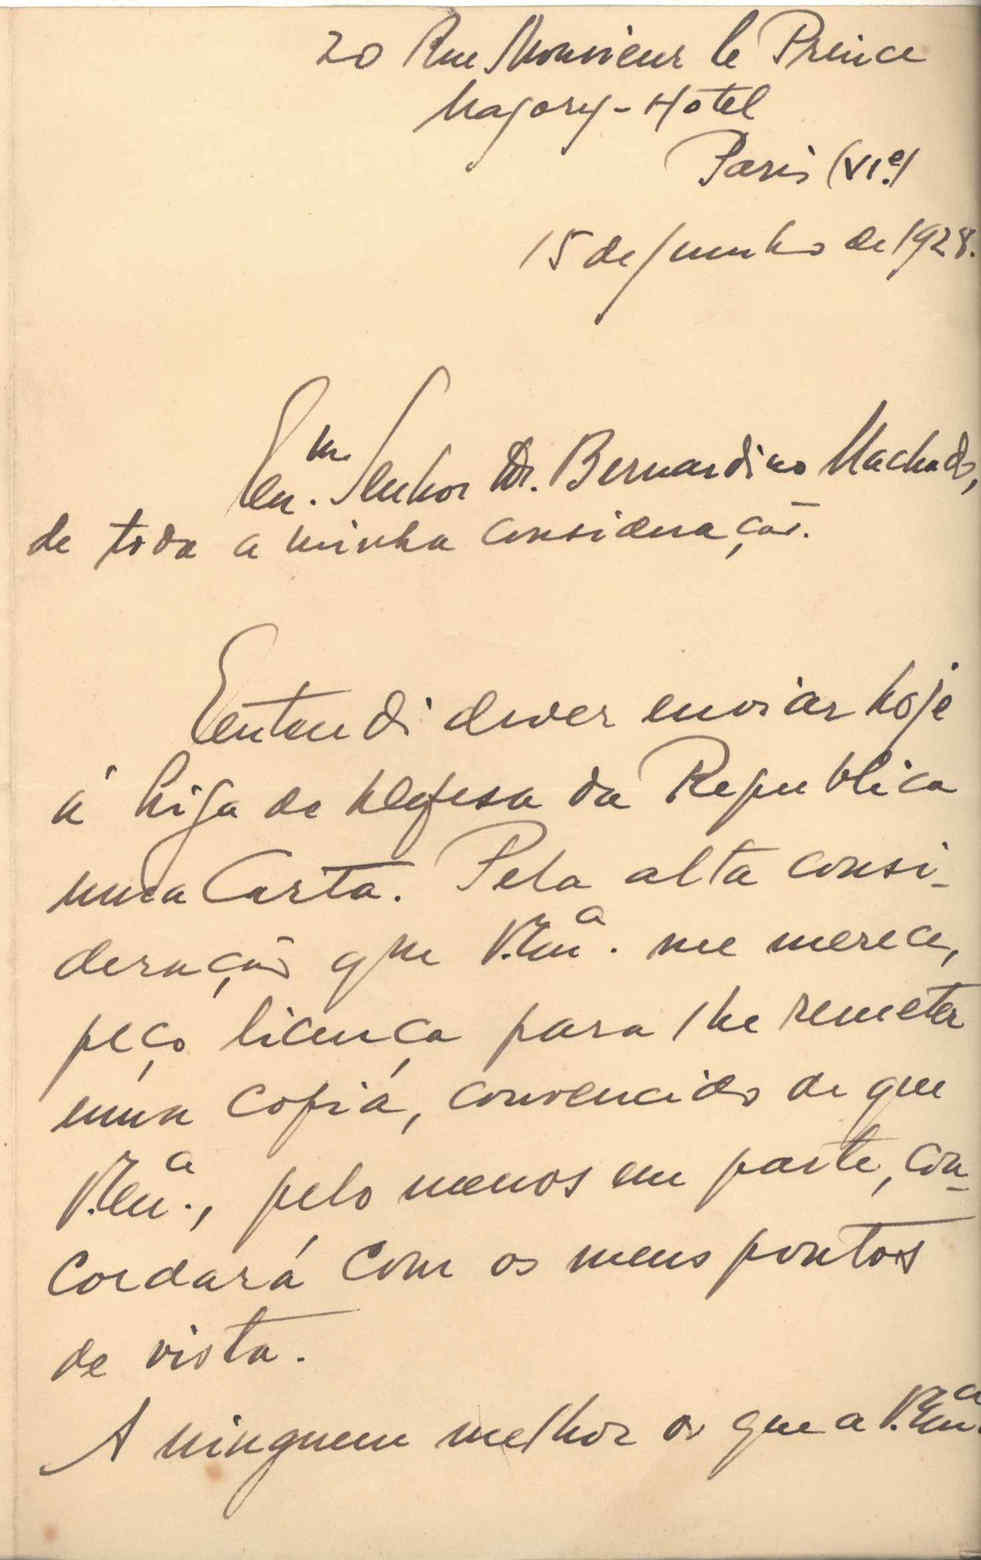 20 Rue Monsieur le Prince
Magory-Hotel
Paris (VIe)
15 de Junho de 1928.
Exmo. Senhor Dr. Bernardino Machado,
de toda a minha consideração.
Entendi dever enviar hoje
á Liga de Defesa da Republica
uma Carta. Pela alta consi-
deração que V. Exa. me merece,
peço licença para lhe remeter
uma copia, convencido de que
V. Exa., pelo menos em parte, con-
cordará com os meus pontos
de vista.
A ninguem melhor do que a V. Exa.